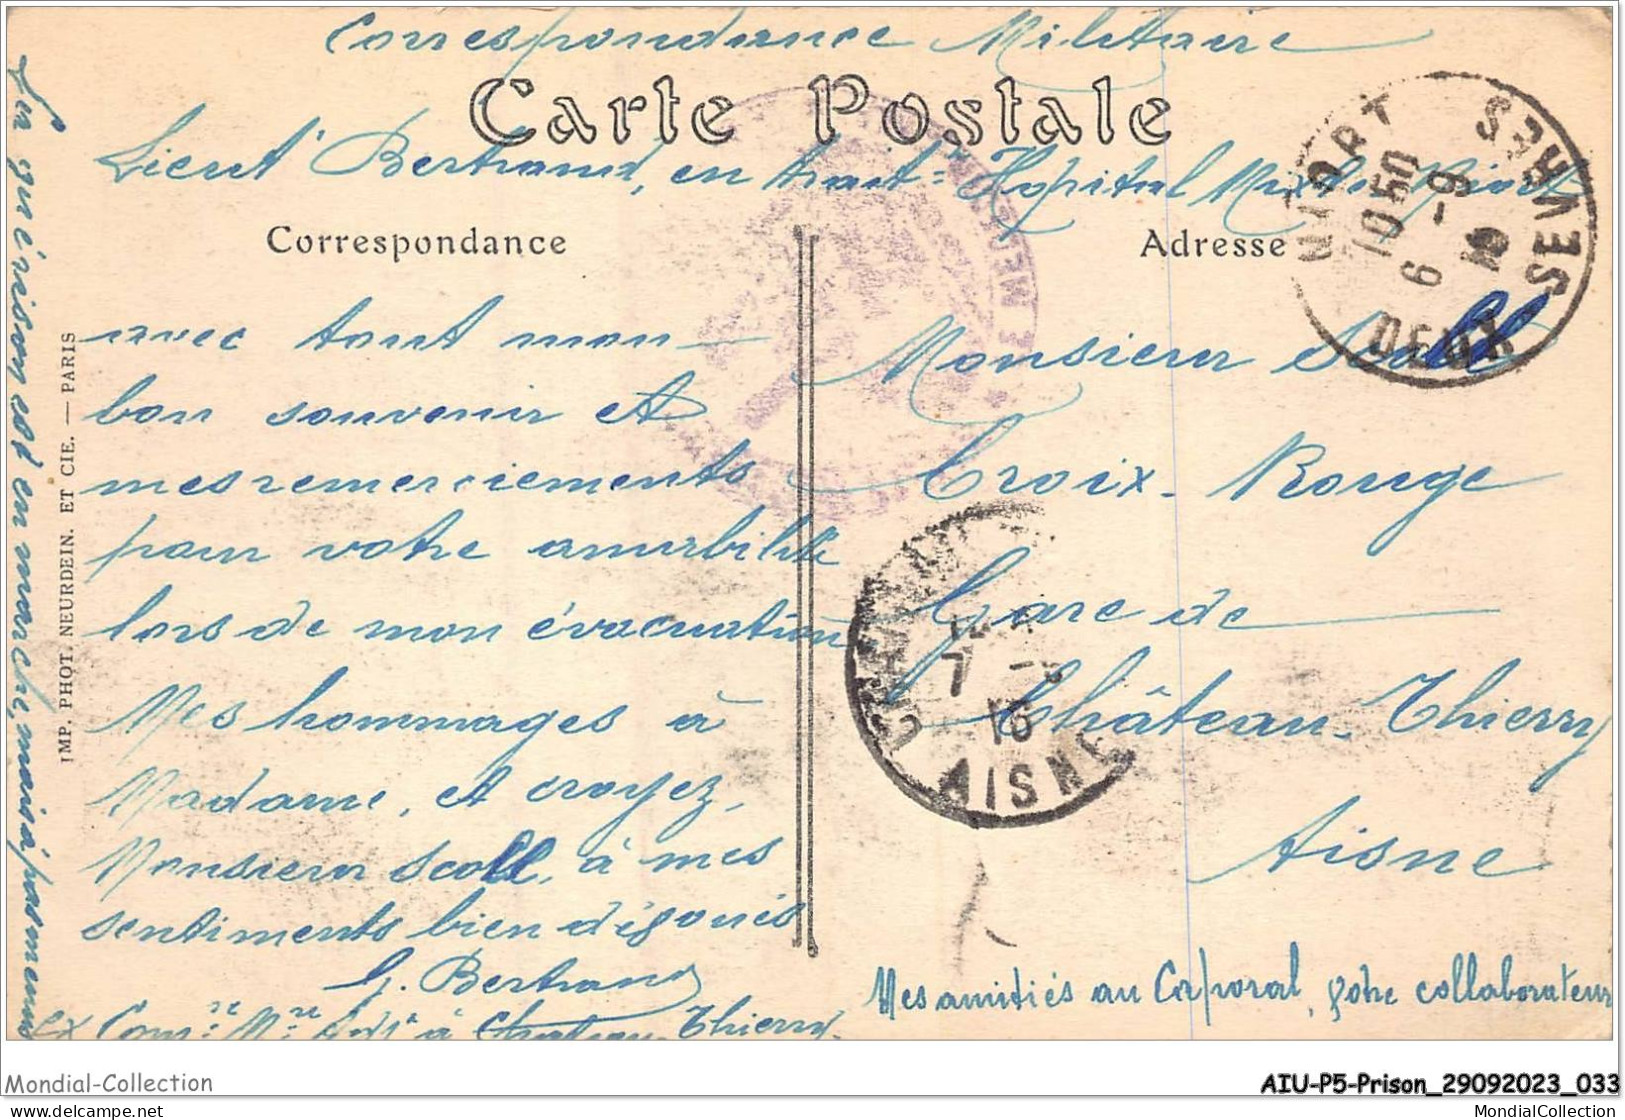 Correspondance Militaire
Carte Postale
Lieut' Bertrand, en trait = Hopital Mixte Niort
Correspondance
avec tout mon
bon souvenir et
mes remerciements
pour votre amabilité
lors de mon évacuation
Mes hommages à
Madame, et croyez,
Monsieur Scoll, à mes
sentiments bien dévoués
G. Bertrand
ex Com.re M.re Adj.t à Château-Thierry
La guérison est en marche, mais à pas menus
IMP. PHOT. NEURDEIN. ET CIE. — PARIS
Adresse
Monsieur Scoll
Croix-Rouge
Gare de
Château-Thierry
Aisne
Mes amitiés au Caporal, votre collaborateur
NIORT
DEUX SEVRES
10 50
6 - 9
CHATEAU
7
16
AISNE
Mondial-Collection
AIU-P5-Prison_29092023_033
www.delcampe.net
MondialCollection